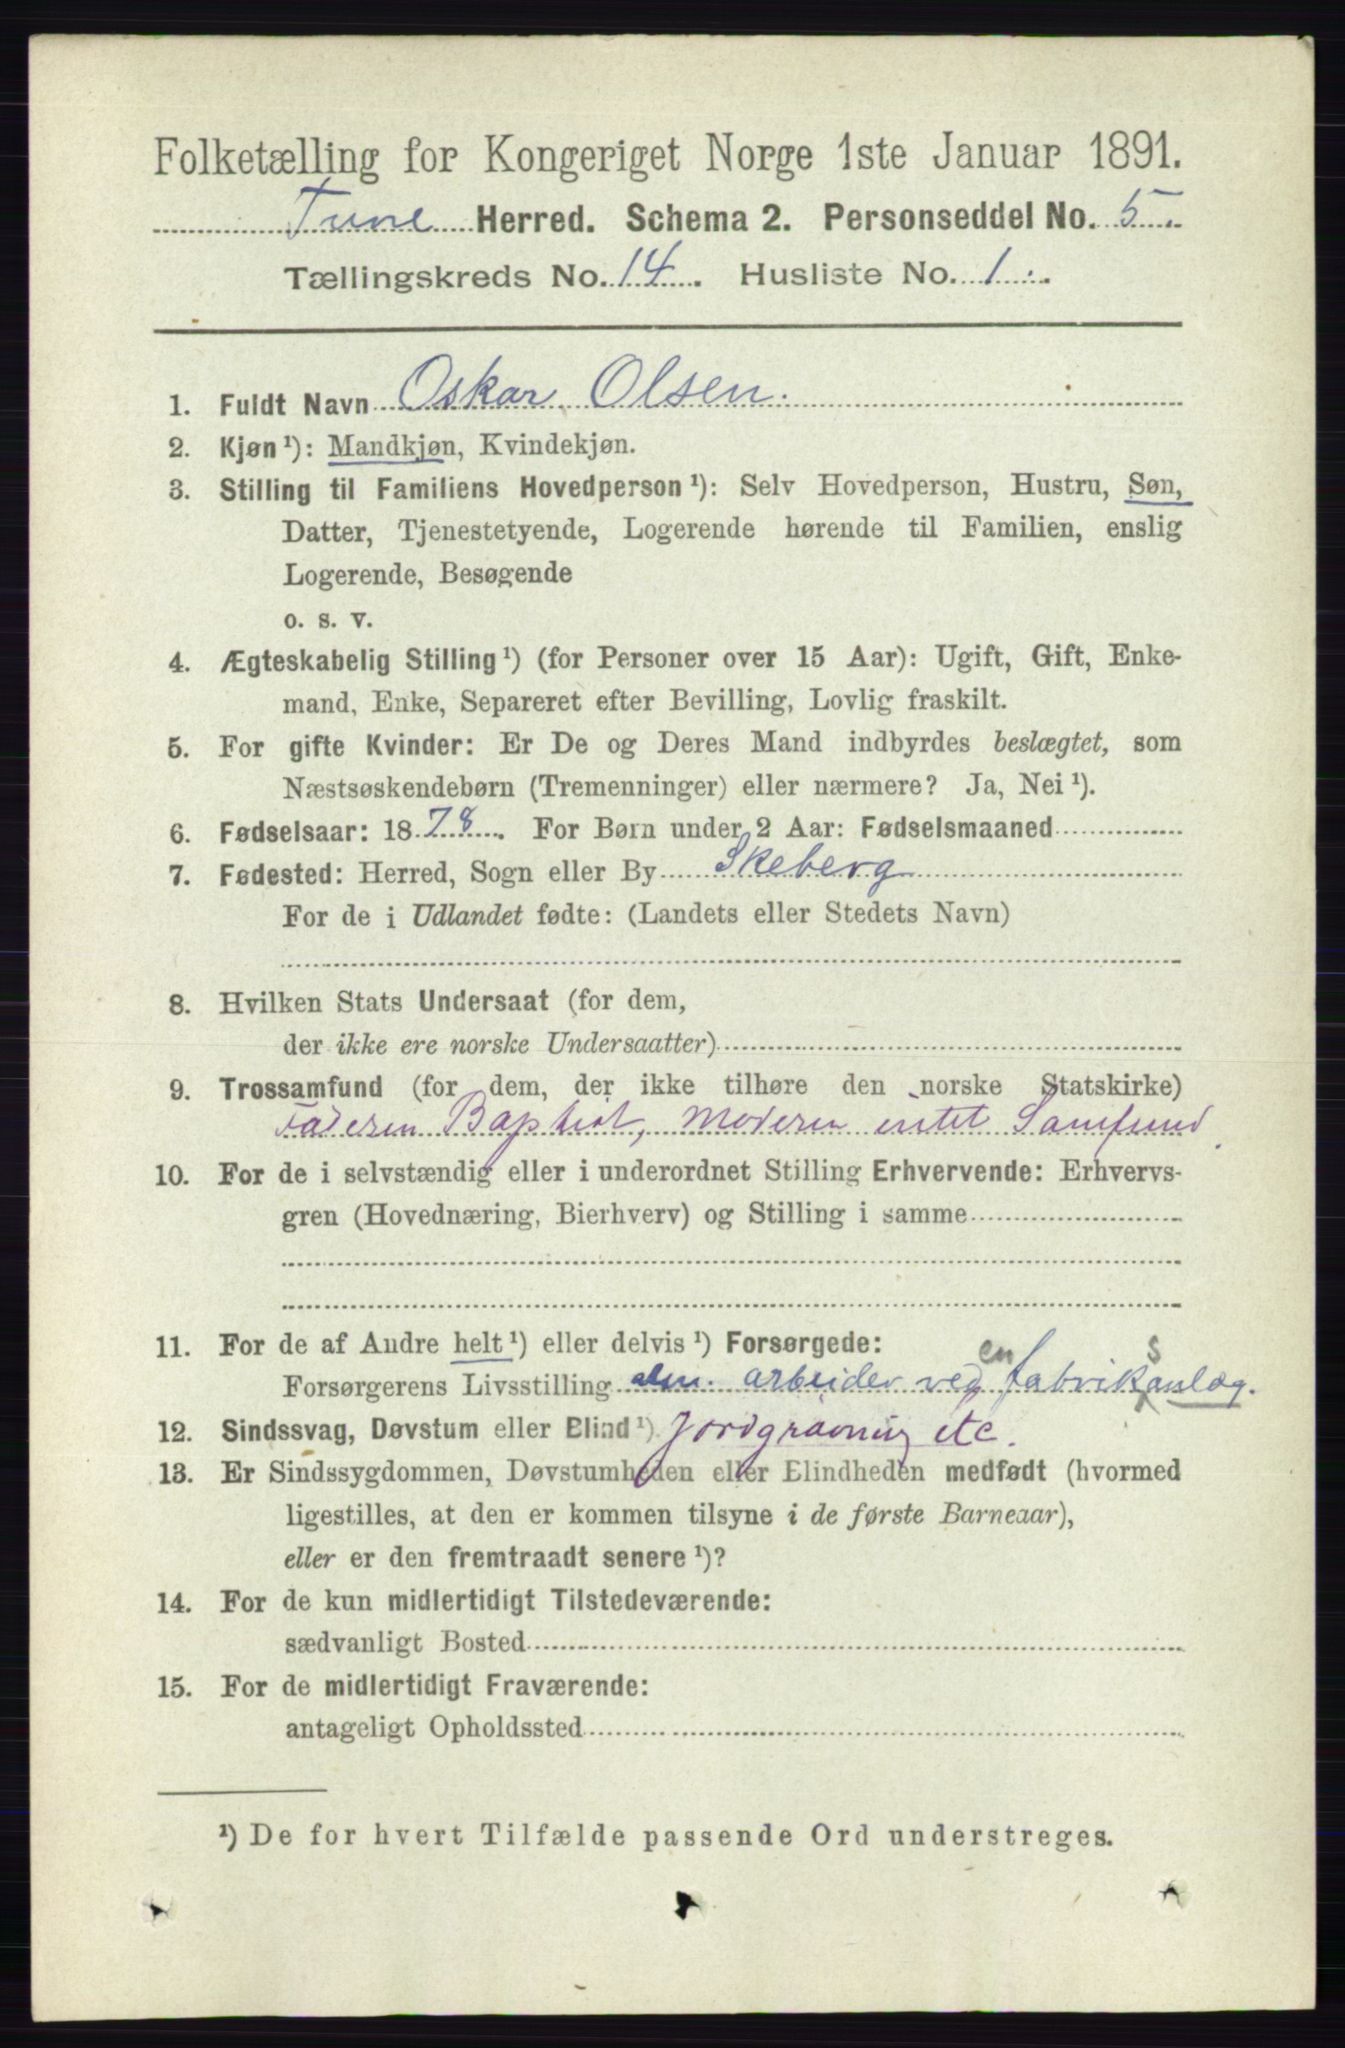 Folketælling for Kongeriget Norge 1ste Januar 1891.
Tune Herred. Schema 2. Personseddel No. 5.
Tællingskreds No. 14. Husliste No. 1.
1. Fuldt Navn Oskar Olsen.
2. Kjøn¹): Mandkjøn, Kvindekjøn.
3. Stilling til Familiens Hovedperson¹): Selv Hovedperson, Hustru, Søn,
Datter, Tjenestetyende, Logerende hørende til Familien, enslig
Logerende, Besøgende
o. s. v.
4. Ægteskabelig Stilling¹) (for Personer over 15 Aar): Ugift, Gift, Enke-
mand, Enke, Separeret efter Bevilling, Lovlig fraskilt.
5. For gifte Kvinder: Er De og Deres Mand indbyrdes beslægtet, som
Næstsøskendebørn (Tremenninger) eller nærmere? Ja, Nei¹).
6. Fødselsaar: 1878. For Børn under 2 Aar: Fødselsmaaned
7. Fødested: Herred, Sogn eller By Skeberg
For de i Udlandet fødte: (Landets eller Stedets Navn)
8. Hvilken Stats Undersaat (for dem,
der ikke ere norske Undersaatter)
9. Trossamfund (for dem, der ikke tilhøre den norske Statskirke)
Faderen Baptist, Moderen intet Samfund.
10. For de i selvstændig eller i underordnet Stilling Erhvervende: Erhvervs-
gren (Hovednæring, Bierhverv) og Stilling i samme
11. For de af Andre helt¹) eller delvis¹) Forsørgede:
Forsørgerens Livsstilling alm. arbeider ved en fabriksanlæg.
12. Sindssvag, Døvstum eller Blind¹). Jordgravning etc.
13. Er Sindssygdommen, Døvstumheden eller Blindheden medfødt (hvormed
ligestilles, at den er kommen tilsyne i de første Barneaar),
eller er den fremtraadt senere¹)?
14. For de kun midlertidigt Tilstedeværende:
sædvanligt Bosted
15. For de midlertidigt Fraværende:
antageligt Opholdssted
¹) De for hvert Tilfælde passende Ord understreges.